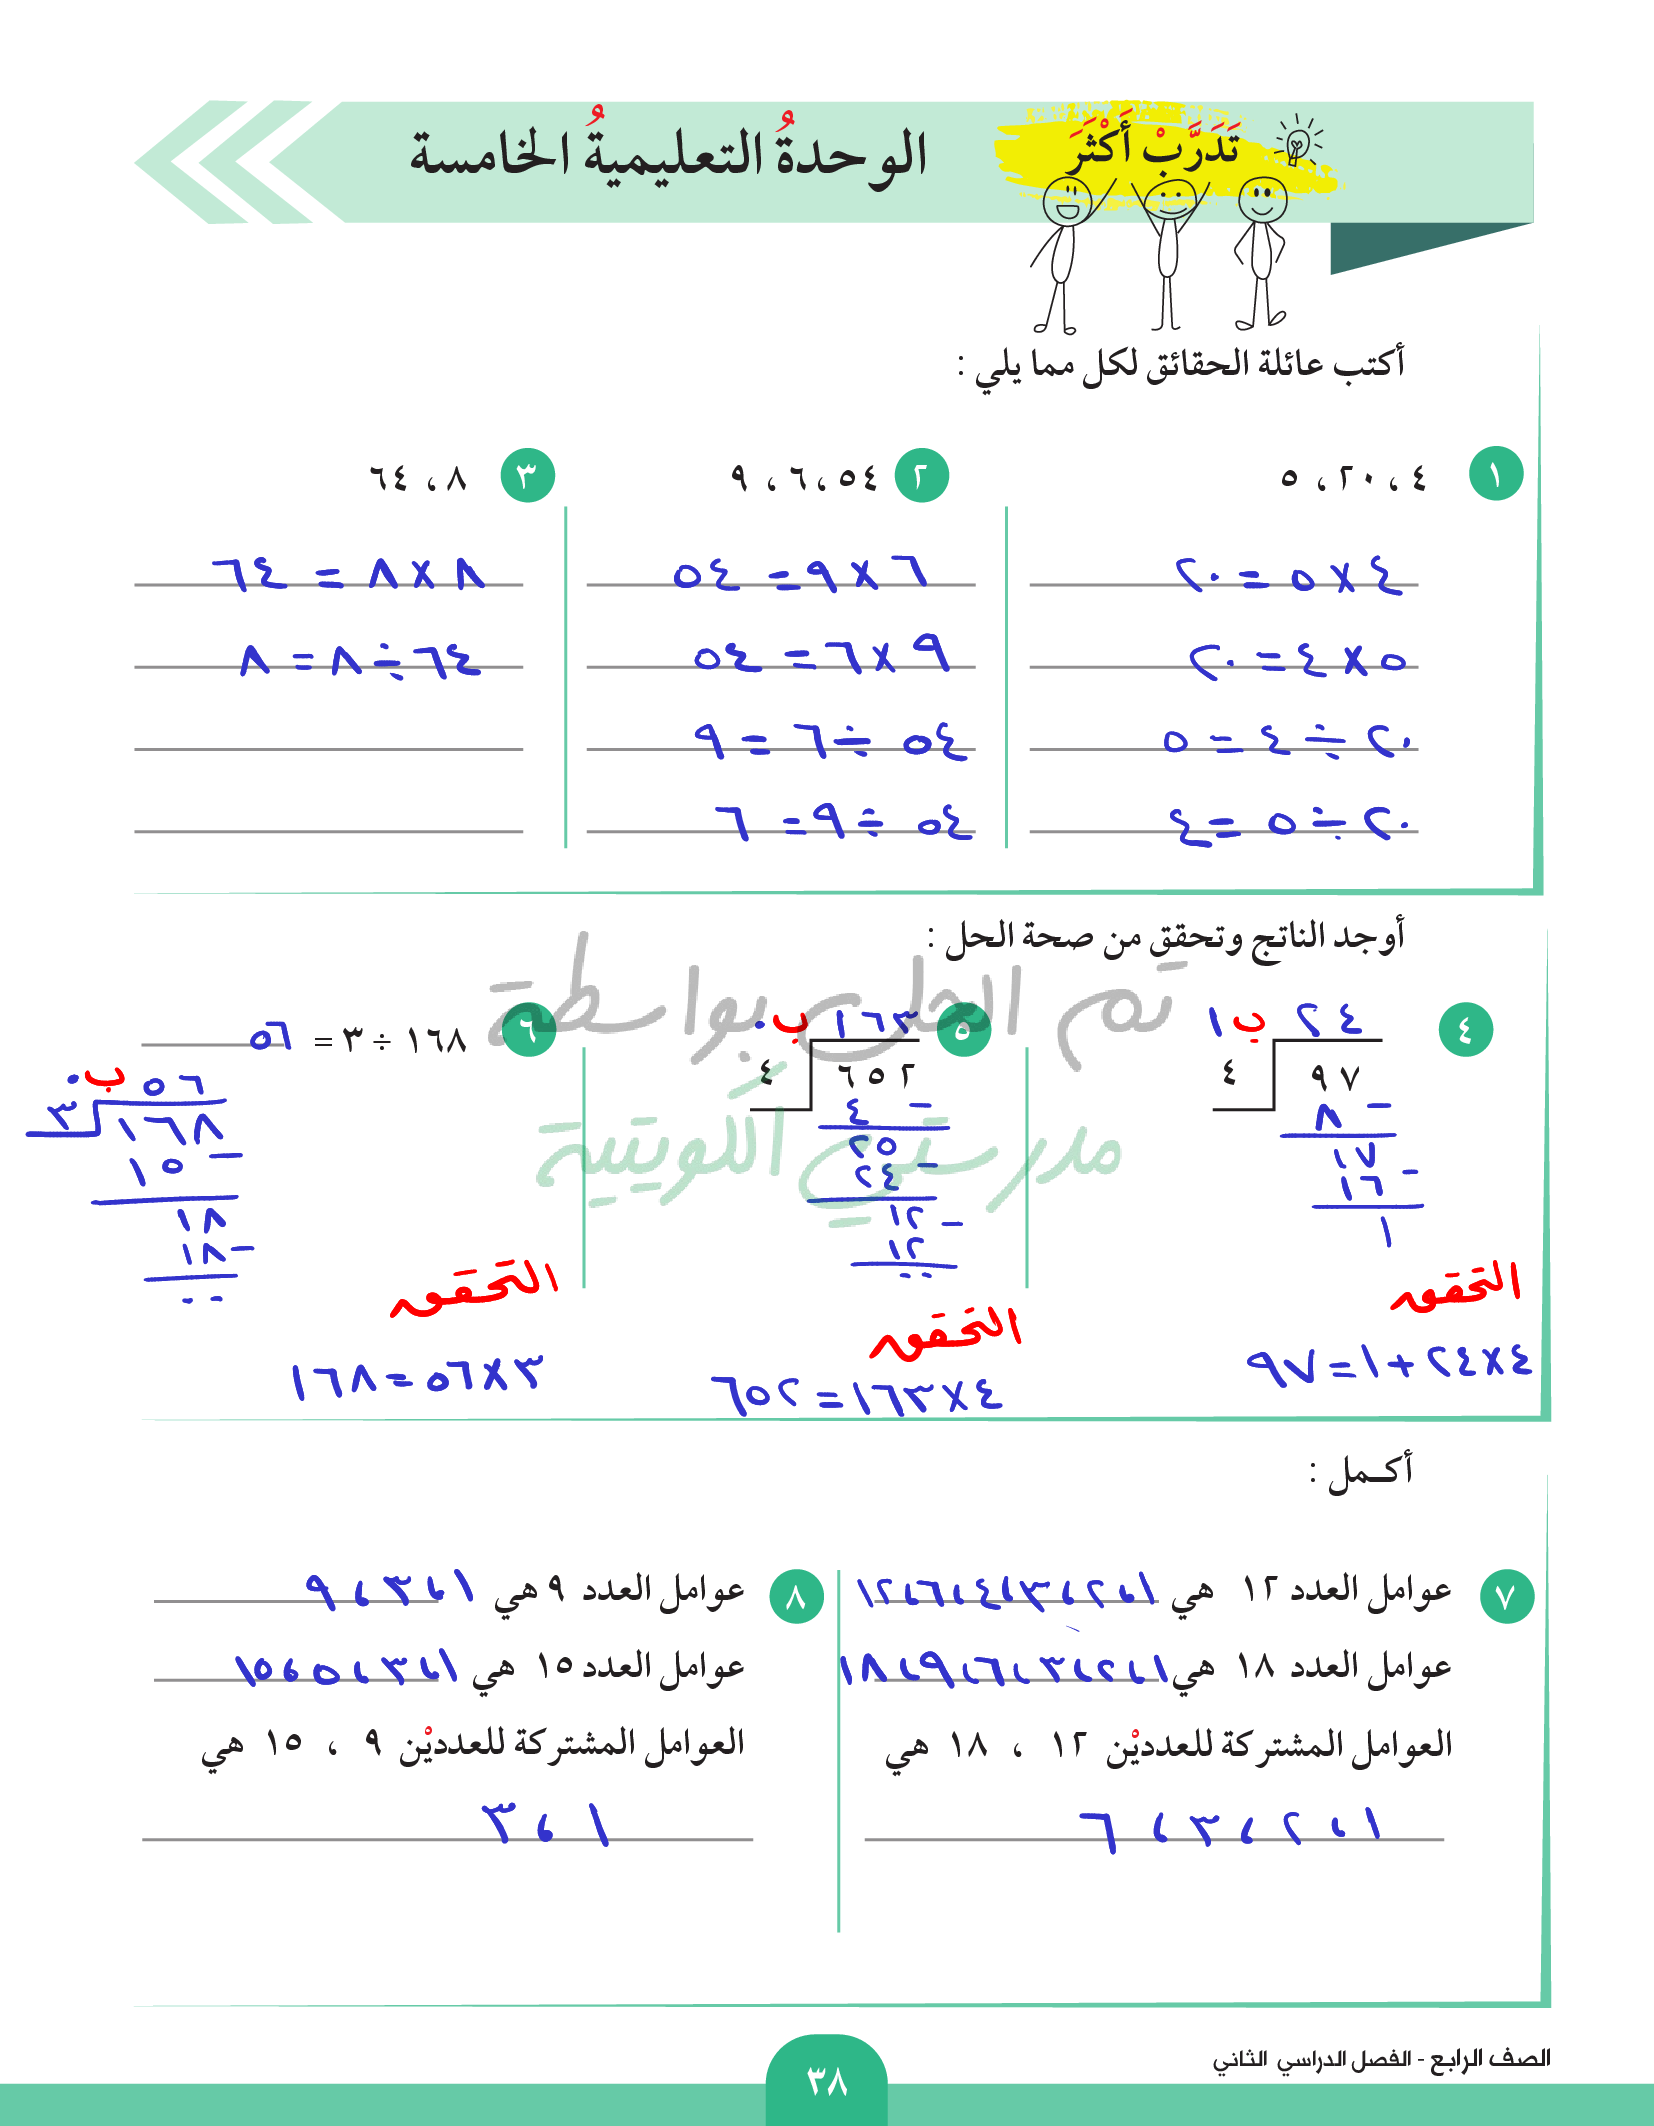 تَدَرَّبْ أَكْثَرَ
الوحدةُ التعليميةُ الخامسة
أكتب عائلة الحقائق لكل مما يلي :
١ ٤ ، ٢٠ ، ٥
٤ × ٥ = ٢٠
٥ × ٤ = ٢٠
٢٠ ÷ ٤ = ٥
٢٠ ÷ ٥ = ٤
٢ ٥٤ ، ٦ ، ٩
٦ × ٩ = ٥٤
٩ × ٦ = ٥٤
٥٤ ÷ ٦ = ٩
٥٤ ÷ ٩ = ٦
٣ ٨ ، ٦٤
٨ × ٨ = ٦٤
٦٤ ÷ ٨ = ٨
أوجد الناتج وتحقق من صحة الحل :
تم الحل بواسطة
مدرستي الكويتية
٤
٢٤ ب ١
٩٧ ٤
٨ −
١٧
١٦ −
١
التحقق
٤ × ٢٤ + ١ = ٩٧
٥
١٦٣ ب ٠
٦٥٢ ٤
٤ −
٢٥
٢٤ −
١٢ −
١٢
٠٠
التحقق
٤ × ١٦٣ = ٦٥٢
٦ ١٦٨ ÷ ٣ = ٥٦
٥٦ ب ٠
١٦٨ ٣
١٥ −
١٨
١٨ −
٠٠
التحقق
٣ × ٥٦ = ١٦٨
أكـمل :
٧ عوامل العدد ١٢ هي ١ ، ٢ ، ٣ ، ٤ ، ٦ ، ١٢
عوامل العدد ١٨ هي ١ ، ٢ ، ٣ ، ٦ ، ٩ ، ١٨
العوامل المشتركة للعدديْن ١٢ ، ١٨ هي
١ ، ٢ ، ٣ ، ٦
٨ عوامل العدد ٩ هي ١ ، ٣ ، ٩
عوامل العدد ١٥ هي ١ ، ٣ ، ٥ ، ١٥
العوامل المشتركة للعدديْن ٩ ، ١٥ هي
١ ، ٣
الصف الرابع - الفصل الدراسي الثاني
٣٨